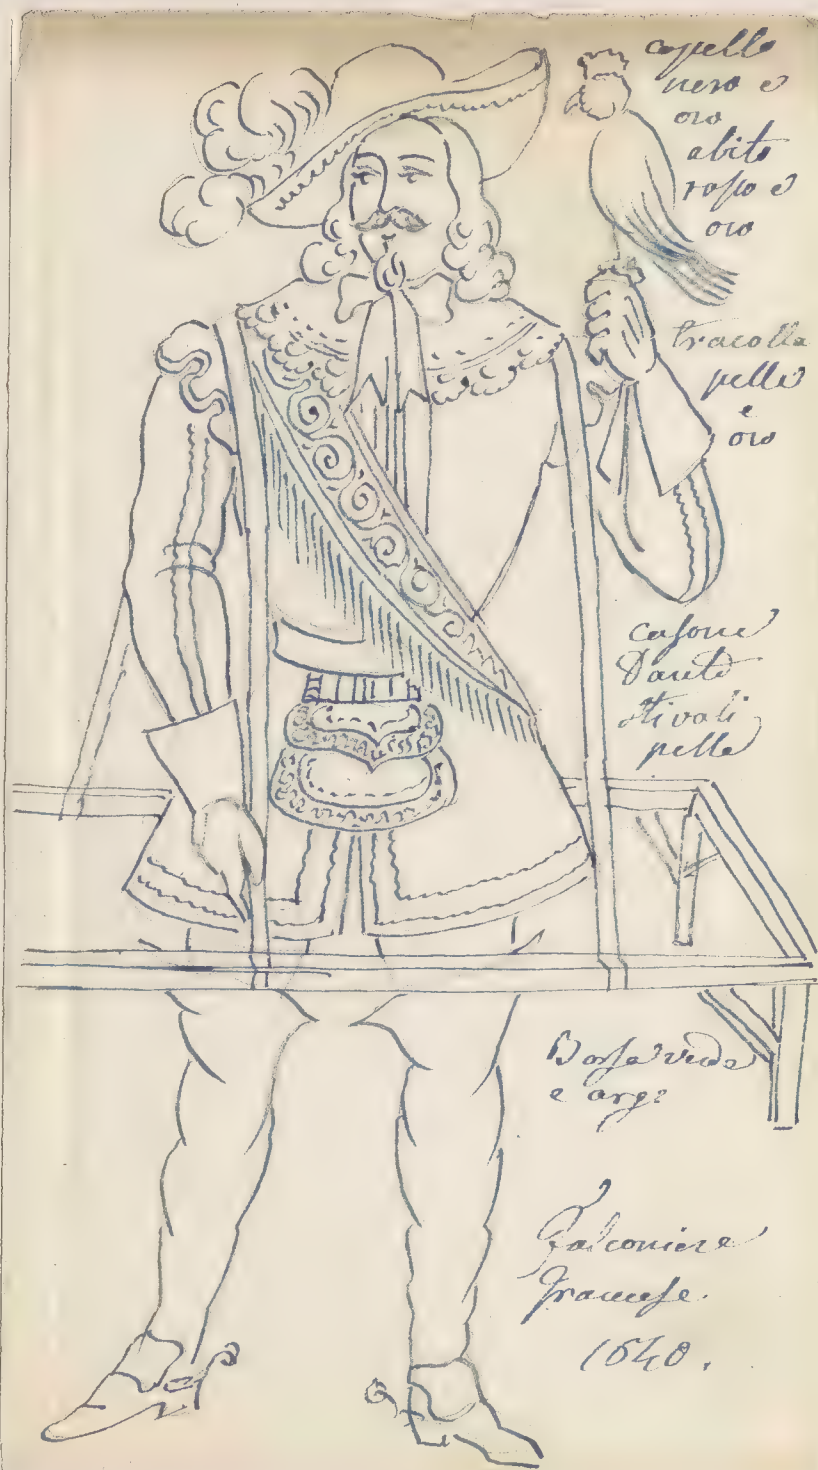 capello
nero e
oro
abito
rosso e
oro
tracolla
pelle
e
oro
casone
Danto
stivali
pelle
Borsa verde
e arge
Falconiere
francese.
1640.